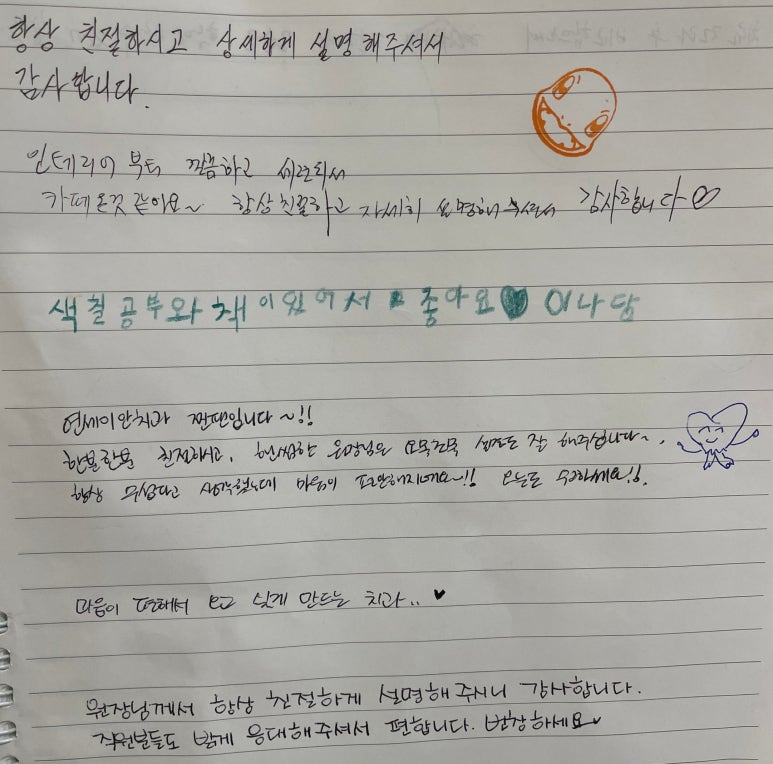 항상 친절하시고 상세하게 설명 해주셔서
감사합니다.
인테리어 부터 깔끔하고 세련되서
카페온것 같아요~ 항상친절하고 자세히 설명해 주셔서 감사합니다♡
색칠공부와 책이있어서 좋아요♥ 이나담
연세이안치과 짱입니다~!!
한분한분 친절하시고, 원장님은 설명도 잘 해주십니다~.
항상 무섭다고 생각했는데 마음이 편안해지네요~!! 오늘도 수고하세요!!.
마음이 편해서 오고 싶게 만드는 치과.. ♥
원장님께서 항상 친절하게 설명해주시니 감사합니다.
직원분들도 밝게 응대해주셔서 편합니다. 번창하세요